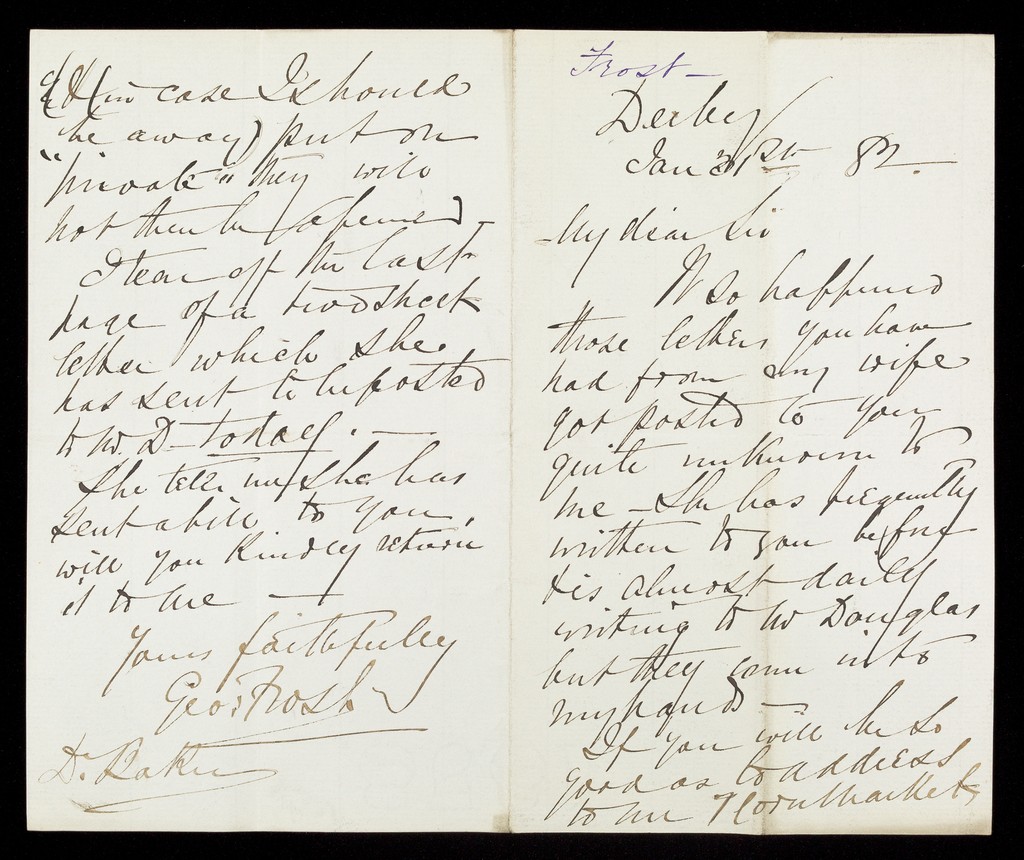 Frost -
Derby
Jan 31st 82.
My dear Sir
It so happened
those letters you have
had from my wife
got posted to you
quite unknown to
me - She has frequently
written to you before
& is almost daily
writing to Mr Douglas
but they come into
my hands -
If you will be so
good as to address
to me 7 Corn Market
& (in case I should
be away) put on
"private" they will
not then be opened -
I tear off the last
page of a two sheet
letter which she
has sent to be posted
to Mr. D - today. -
She tells me she has
sent a bill to you,
will you kindly return
it to me -
Yours faithfully
Geo: Frost
Dr. Baker